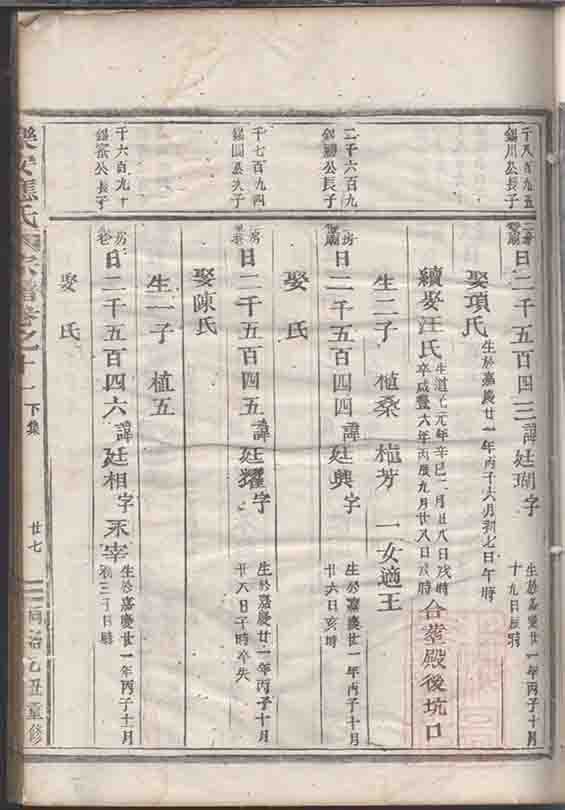 千八百九五
錫川公長子
日二千五百四三諱廷瑚字
生於嘉慶廿一年丙子十月
十九日辰時
娶項氏
生於嘉慶廿一年丙子六月初七日午時
續娶汪氏
生道光元年辛巳二月廿八日戌時
卒咸豐六年丙辰九月廿八日戌時
合葬殿後坑口
生二子 植桑 植芳 一女適王
二千六百九
錫 公長子
房
日二千五百四四諱廷興字
生於嘉慶廿一年丙子十月
廿六日亥時
娶 氏
千七百九四
錫 公次子
房
日二千五百四五諱廷耀字
生於嘉慶廿一年丙子十月
廿八日子時卒失
娶陳氏
生一子 植五
千六百九十
錫 公長子
房
日二千五百四六諱廷相字永宰
生於嘉慶廿一年丙子十一月
初三日 時
娶 氏
樂安 氏 宗譜卷之十一
下集
廿七
同治乙丑重修